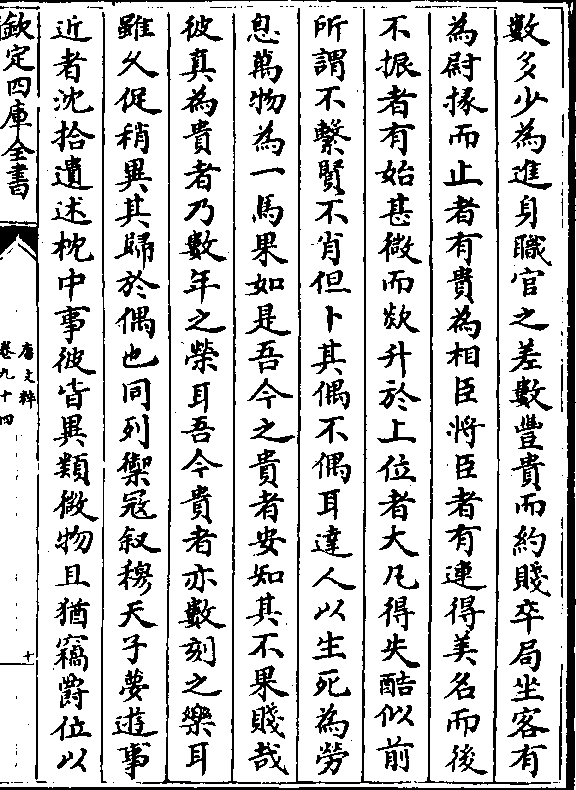 數多少為進身職官之差數豐貴而約賤卒局坐客有
為尉掾而止者有貴為相臣將臣者有連得美名而後
不振者有始甚微而欻升於上位者大凡得失酷似前
所謂不繫賢不肖但卜其偶不偶耳達人以生死為勞
息萬物為一馬果如是吾今之貴者安知其不果賤哉
彼真為貴者乃數年之榮耳吾今貴者亦數刻之樂耳
雖久促稍異其歸於偶也同列禦冦叙穆天子夢遊事
近者沈拾遺述枕中事彼皆異類微物且猶竊爵位以
欽定四庫全書
唐文粹
卷九十四
十